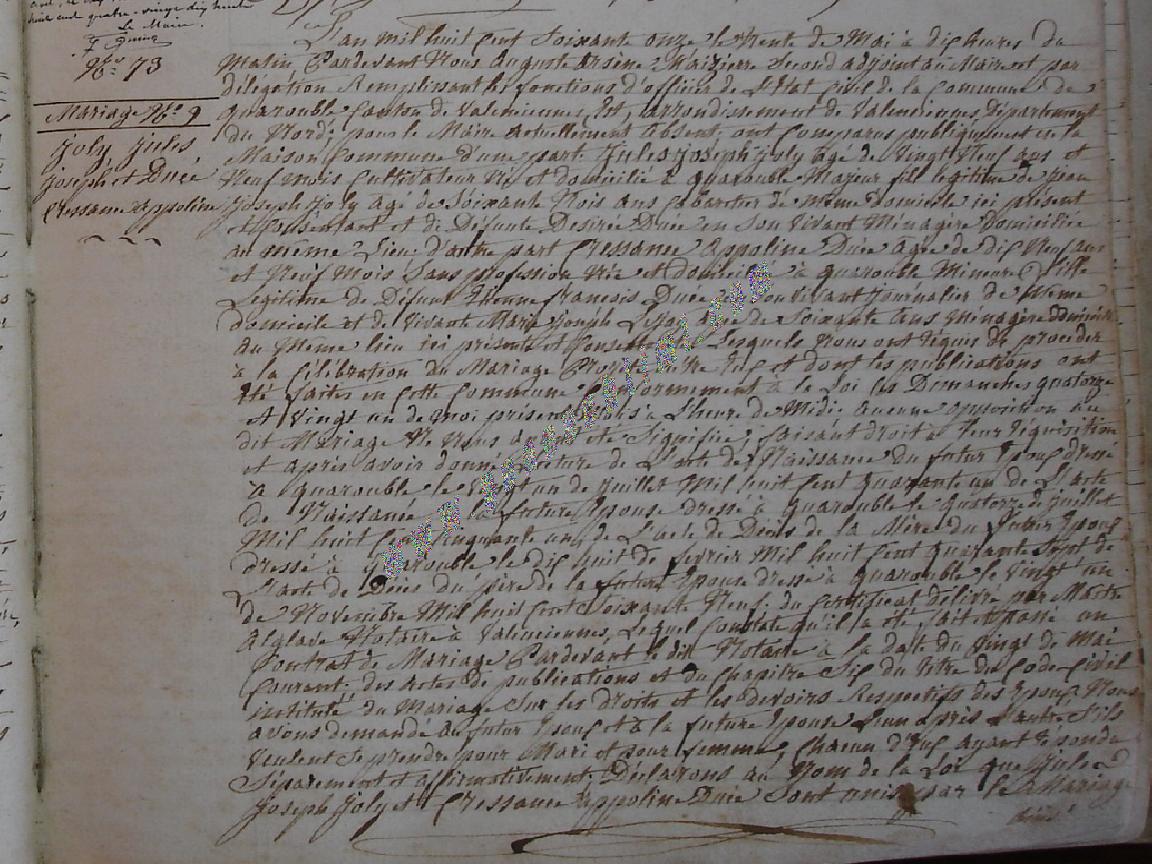 huit cent quatre-vingt dix huit
Le Maire.
N° 73
Mariage N° 9
Joly Jules
Joseph et Dué
Cressance Appoline
L'an mil huit cent Soixante onze le trente de Mai à dix heures du
Matin Pardevant Nous Auguste Arsène second adjoint au Maire et par
délégation Remplissant les fonctions d'officier de l'Etat Civil de la Commune de
quarouble Canton de Valenciennes, Est, arrondissement de Valenciennes, Département
du Nord, pour le Maire actuellement absent, ont comparus publiquement en la
Maison Commune d'une part Jules Joseph Joly âgé de Vingt Neuf ans et
Neuf mois Cultivateur Né et domicilié à quarouble Majeur fils légitime de
Joseph Joly âgé de Soixante trois ans Cabaretier de même domicile ici présent
et Consentant et de Défunte Desirée Dué en son vivant Ménagère domiciliée
au même lieu; d'autre part Cressance Appoline Dué âgée de dix Neuf ans
et Neuf Mois Sans profession Née et domiciliée à quarouble Mineure fille
Légitime de Défunt Etienne françois Dué en son vivant Journalier de Même
domicile et de vivante Marie Joseph de Soixante ans Ménagère domiciliée
au Même lieu ici présente et Consentante Lesquels Nous ont requis de procéder
à la Célébration du Mariage Projeté entre Eux et dont les publications ont
été faites en cette Commune Conformement à la Loi les Dimanches quatorze
et Vingt un de Mai présent Mois à l'heure de Midi. Aucune opposition au
dit Mariage Ne Nous ayant été Signifiée; faisant droit à leur réquisition
et après avoir donné lecture de L'acte de Naissance du futur Epoux dressé
à quarouble le Vingt un de Juillet Mil huit Cent quarante un de L'acte
de Naissance de la future Epouse dressé à quarouble le quatorze de Juillet
Mil huit Cent Cinquante un, de L'acte de Décès de la Mère du futur Epoux
dressé à quarouble le dix huit de février Mil huit Cent quarante Sept de
L'acte de Décès du père de la future Epouse dressé à quarouble le Vingt un
de Novembre Mil huit Cent Soixante Neuf; du Certificat délivré par Maître
Notaire à Valenciennes, Lequel Constate qu'il a été fait et passé un
Contrat de Mariage Pardevant le dit Notaire à la date du Vingt de Mai
Courant; des actes de publications et du Chapitre Six du titre du Code Civil
intitulé du Mariage Sur les droits et les devoirs Respectifs des Epoux, Nous
avons demandé au futur Epoux et à la future Epouse l'un après l'autre, S'ils
veulent se prendre pour Mari et pour femme, Chacun d'Eux ayant répondu
Séparement et affirmativement, Déclarons au Nom de la Loi que Jules
Joseph Joly et Cressance Appoline Dué Sont unis par le Mariage